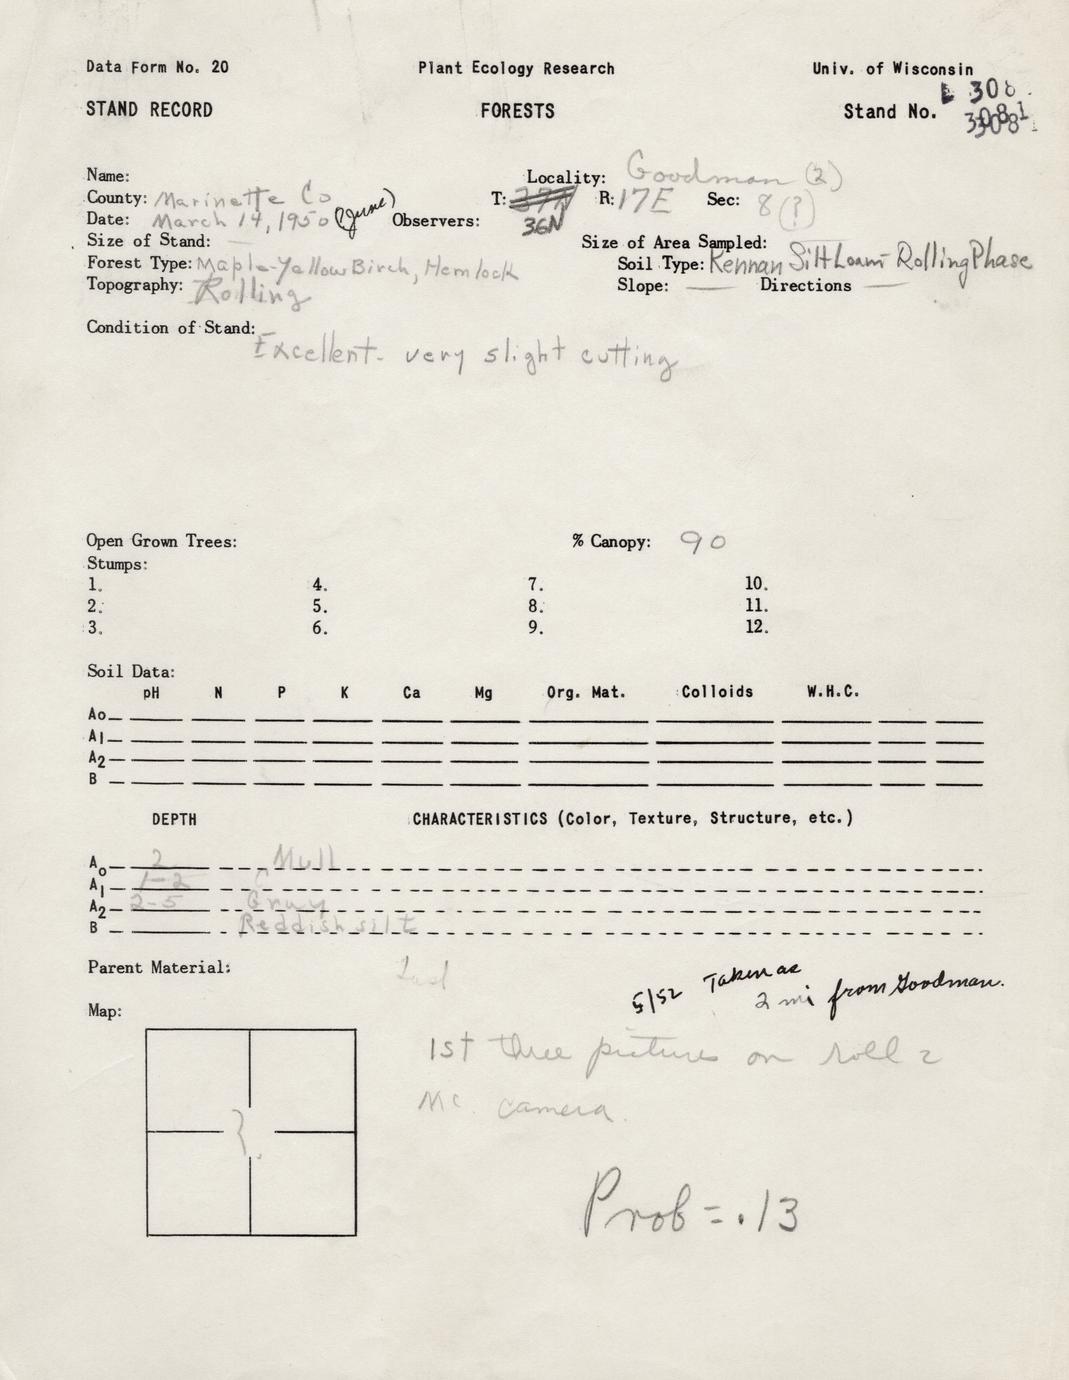 Data Form No. 20 Plant Ecology Research Univ. of Wisconsin
308
STAND RECORD FORESTS Stand No. 3081
Name: Locality: Goodman (2)
County: Marinette Co T: 37N R: 17E Sec: 8 (?)
Date: March 14, 1950 (June) Observers: 36N
Size of Stand: — Size of Area Sampled:
Forest Type: Maple-Yellow Birch, Hemlock Soil Type: Kennan Silt Loam Rolling Phase
Topography: Rolling Slope: — Directions —
Condition of Stand:
Excellent- very slight cutting
Open Grown Trees: % Canopy: 90
Stumps:
1. 4. 7. 10.
2. 5. 8. 11.
3. 6. 9. 12.
Soil Data:
pH N P K Ca Mg Org. Mat. Colloids W.H.C.
Ao
A1
A2
B
DEPTH CHARACTERISTICS (Color, Texture, Structure, etc.)
Ao 2 Mull
A1 1-2
A2 2-5 Gray
B Reddish silt
Parent Material:
5/52 Taken as
2 mi from Goodman.
Map:
1st three pictures on roll 2
Mc. camera.
?
Prob = .13